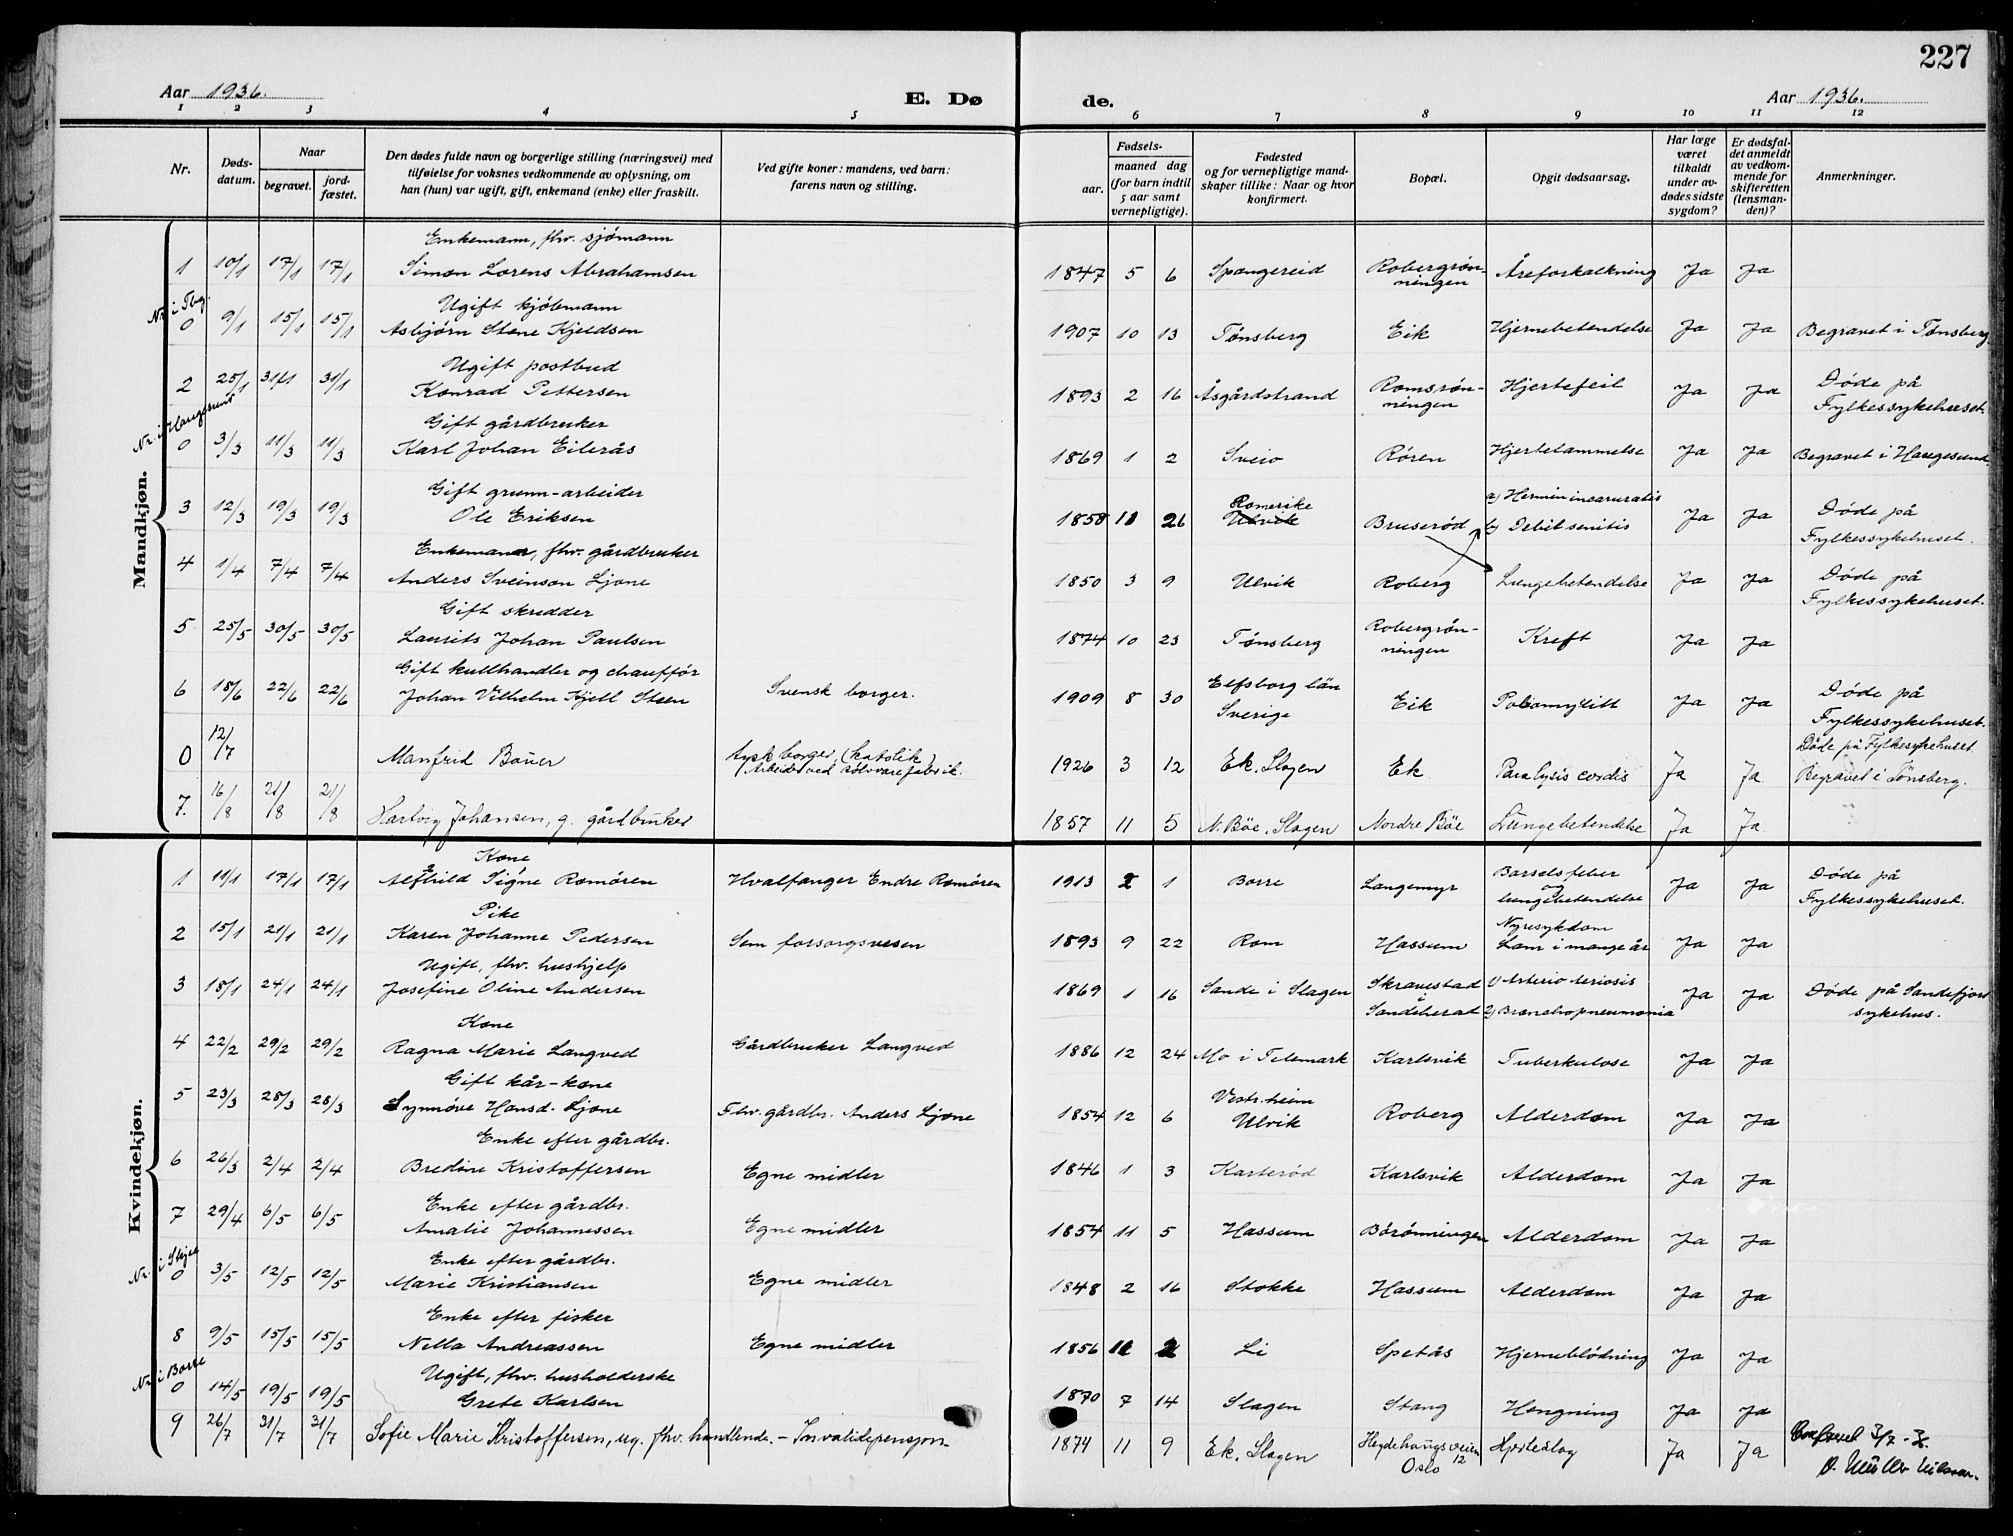 227
Aar 1936. E. Dø de. Aar 1936.
1 2 3 4 5 6 7 8 9 10 11 12
Nr. Døds-datum. Naar begravet. jord-fæstet. Den dødes fulde navn og borgerlige stilling (næringsvei) med tilføielse for voksnes vedkommende av oplysning, om han (hun) var ugift, gift, enkemand (enke) eller fraskilt. Ved gifte koner: mandens, ved barn: farens navn og stilling. Fødsels- aar. maaned dag (for barn indtil 5 aar samt vernepligtige). Fødested og for vernepligtige mand-skaper tillike: Naar og hvor konfirmert. Bopæl. Opgit dødsaarsag. Har læge været tilkaldt under av-dødes sidste sygdom? Er dødsfal-det anmeldt av vedkom-mende for skifteretten (lensman-den)? Anmerkninger.
Mandkjøn.
Enkemann, fhv. sjömann
1 10/1 17/1 17/1 Simon Lorens Abrahamsen 1847 5 6 Spangereid Robergrøn-ningen Åreforkalkning Ja Ja
Nr. i Tbg. Ugift kjøbmann
0 9/1 15/1 15/1 Asbjørn Stene Kjeldsen 1907 10 13 Tønsberg Eik Hjernebetendelse Ja Ja Begravet i Tønsberg.
Ugift postbud
2 25/1 31/1 31/1 Konrad Pettersen 1893 2 16 Åsgårdstrand Romsrøn-ningen Hjertefeil Ja Ja Døde på Fylkessykehuset.
Nr. i Haugesund Gift gårdbruker
0 3/3 11/3 11/3 Karl Johan Eilerås 1869 1 2 Sveio Røren Hjertelammelse Ja Ja Begravet i Haugesund.
Gift grunn-arbeider
3 12/3 19/3 19/3 Ole Eriksen 1858 11 26 Romerike Ulvik Bruserød a) b) Debil senilis Ja Ja Døde på Fylkessykehuset.
Enkemann, fhv. gårdbruker
4 1/4 7/4 7/4 Anders Sveinson Ljone 1850 3 9 Ulvik Roberg Lungebetendelse Ja Ja Døde på Fylkessykehuset.
Gift skredder
5 25/5 30/5 30/5 Laurits Johan Paulsen 1874 10 23 Tønsberg Robergrøn-ningen Kreft Ja Ja
Gift kullhandler og chaufför
6 18/6 22/6 22/6 Johan Vilhelm Kjell Steen Svensk borger. 1909 8 30 Elfsborg län Sverige Eik Poliomyelitt Ja Ja Døde på Fylkessykehuset.
0 12/7 Manfrid Bauer tysk borger, (katolik) (Arbeider ved sølvvarefabrik. 1926 3 12 Ek, Slagen Ek Paralysis cordis Ja Ja Døde på Fylkessykehuset Begravet i Tönsberg.
7. 16/8 21/8 21/8 Hartvig Johansen, g. gårdbruker 1857 11 5 N. Bøe, Slagen Nordre Bøe Lungebetendelse Ja Ja
Kvindekjøn.
Kone
1 11/1 17/1 17/1 Alfhild Signe Romören Hvalfanger Endre Romören 1913 2 1 Borre Langemyr Barselsfeber og lungebetendelse Ja Ja Døde på Fylkessykehuset.
Pike
2 15/1 21/1 21/1 Karen Johanne Pedersen Sem forsorgsvesen 1893 9 22 Rom Hassum Nyresykdom Lam i mange år Ja Ja
Ugift, fhv. hushjelp
3 18/1 24/1 24/1 Josefine Oline Andersen 1869 1 16 Sande i Slagen Skravestad i Sandeherad 1) 2) Bronchopneumonia Ja Ja Døde på Sandefjord sykehus.
Kone
4 22/2 29/2 29/2 Ragna Marie Langved Gårdbruker Langved 1886 12 24 Mo i Telemark Karlsvik Tuberkulose Ja Ja
Gift kår-kone
5 23/3 28/3 28/3 Synnöve Hansd. Ljone Fhv. gårdbr. Anders Ljone 1854 12 6 Vestrheim Ulvik Roberg Alderdom Ja Ja
Enke efter gårdbr.
6 26/3 2/4 2/4 Bredine Kristoffersen Egne midler 1846 1 3 Karlsvik Alderdom Ja Ja
Enke efter gårdbr.
7 29/4 6/5 6/5 Amalie Johannessen Egne midler 1854 11 5 Hassum Börönningen Alderdom Ja Ja
Nr. i Skjee Enke efter gårdbr.
0 3/5 12/5 12/5 Marie Kristiansen Egne midler 1848 2 16 Stokke Hassum Alderdom Ja Ja
Enke efter fisker
8 9/5 15/5 15/5 Nella Andreassen Egne midler 1856 Li Spetås Hjerneblödning Ja Ja
Nr. i Borre Ugift, fhv. husholderske
0 14/5 19/5 19/5 Grete Karlsen 1870 7 14 Slagen Stang Hengning Ja Ja
9 26/7 31/7 31/7 Sofie Marie Kristoffersen, ug. fhv. handlende. - Invalidepensjon. 1874 11 9 Ek, Slagen Hegdehaugsveien 12 Oslo Hjerteslag Ja Ja